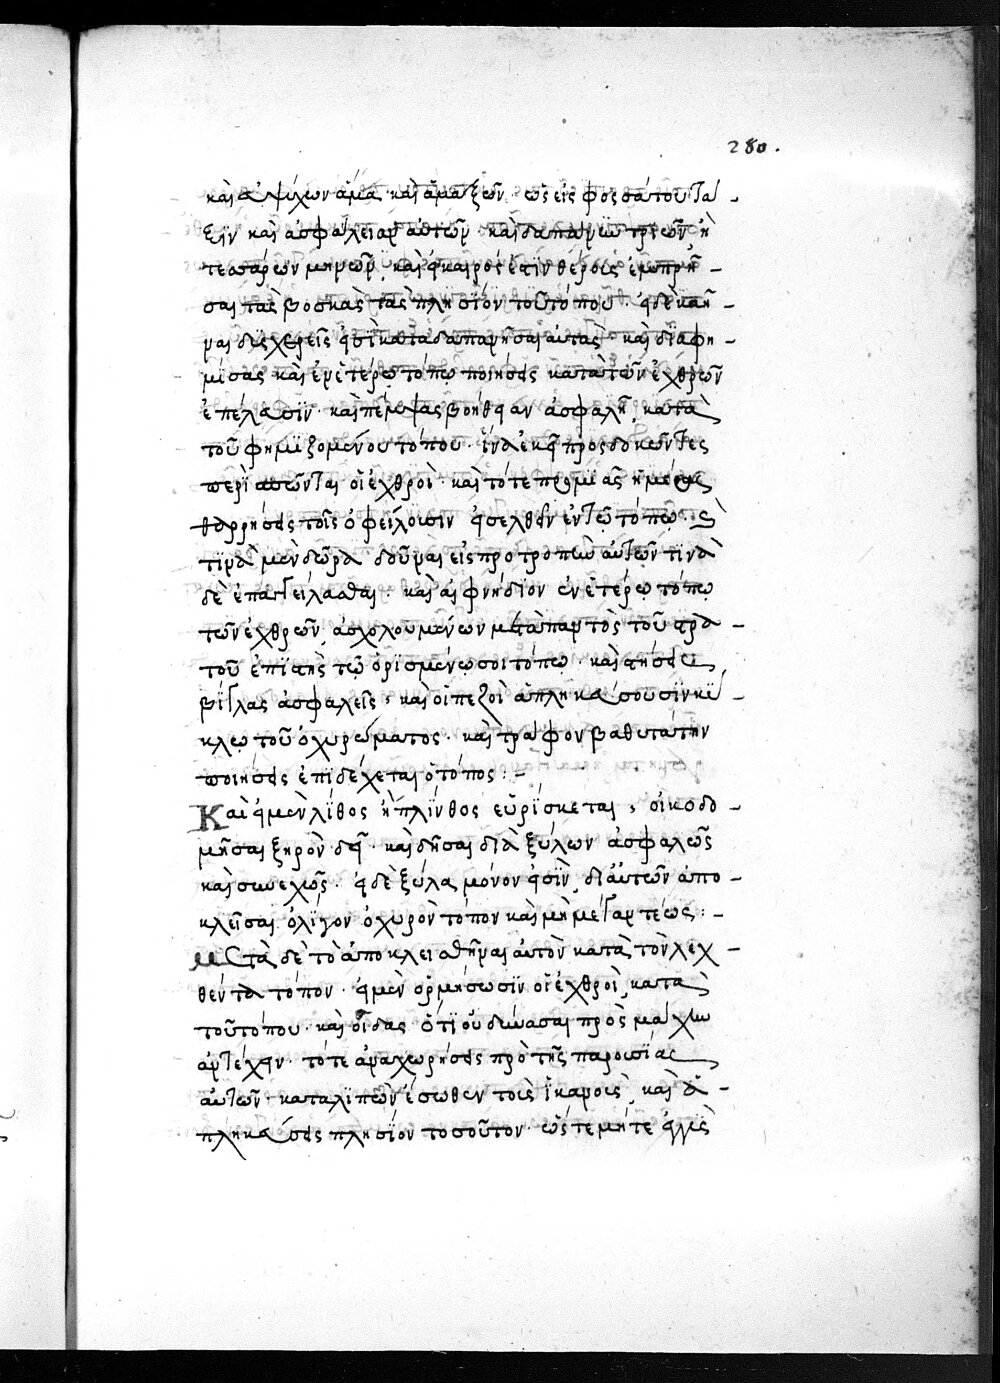 280.
καὶ ἀψύχων ἅμα καὶ ἁμαξῶν· ὡς εἰς φοσσάτου τά
ξιν καὶ ἀσφάλειαν αὐτῶν· καὶ δαπάνην τριῶν ἢ
τεσσάρων μηνῶν, καὶ εἰ καιρός ἐστιν θέρους ἐμπρῆ
σαι τὰς βοσκὰς τὰς πλησίον τοῦ τόπου· εἰ δὲ καῆ
ναι δυσχερεῖς εἰσὶ καταδαπανῆσαι αὐτάς· καὶ διαφη
μίσας καὶ ἐν ἑτέρω τόπω ποιήσεις κατὰ τῶν ἐχθρῶν
ἐπέλασιν· καὶ πέμψας βοήθειαν ἀσφαλῆ κατὰ
τοῦ φημιζομένου τόπου· ἵνα ἐκεῖ προσδοκῶντες
περισπῶνται οἱ ἐχθροί· καὶ τότε πρὸ μιᾶς ἡμέρας
θαρρήσεις τοῖς ὀφείλουσιν εἰσελθεῖν ἐν τῶ τόπω·
τινὰ μὲν δῶρα δοῦναι εἰς προτροπὴν αὐτῶν τινὰ
δὲ ἐπαγγείλασθαι· καὶ αἰφνήδιον ἐν ἑτέρω τόπω
τῶν ἐχθρῶν ἀσχολουμένων μετὰ παντὸς τοῦ στρα
τοῦ ἐπιστῆς τῶ ὁρισμένω σοι τόπω· καὶ στήσεις
βίγλας ἀσφαλεῖς, καὶ οἱ πεζοὶ ἀπληκεύσουσιν κύ
κλω τοῦ ὀχυρώματος· καὶ τράφον βαθυτάτην
ποιήσεις ἐπιδέχεται ὁ τόπος:-
Καὶ εἰ μὲν λίθος ἢ πλίνθος εὑρίσκεται, οἰκοδο
μῆσαι ξηρὸν δεῖ· καὶ δῆσαι διὰ ξύλων ἀσφαλῶς
καὶ συνεχῶς· εἰ δὲ ξύλα μόνον εἰσὶν, δι' αὐτῶν ἀπο
κλεῖσαι ὀλίγον ὀχυρὸν τόπον καὶ μὴ μέγαν τέως:-
Μετὰ δὲ τὸ ἀποκλεισθῆναι αὐτὸν κατὰ τὸν λεχ
θέντα τόπον· εἰ μὲν ὁρμήσωσιν οἱ ἐχθροὶ κατὰ
τοῦ τόπου· καὶ οἶδας ὅτι οὐ δύνασαι πρὸς μάχην
ἀντέχειν· τότε ἀναχωρήσεις πρὸ τῆς παρουσίας
αὐτῶν· καταλιπὼν ἔσωθεν τοὺς ἱκανοὺς, καὶ ἀ
πληκεύσεις πλησίον τοσοῦτον· ὥστε μήτε ἐγγὺς